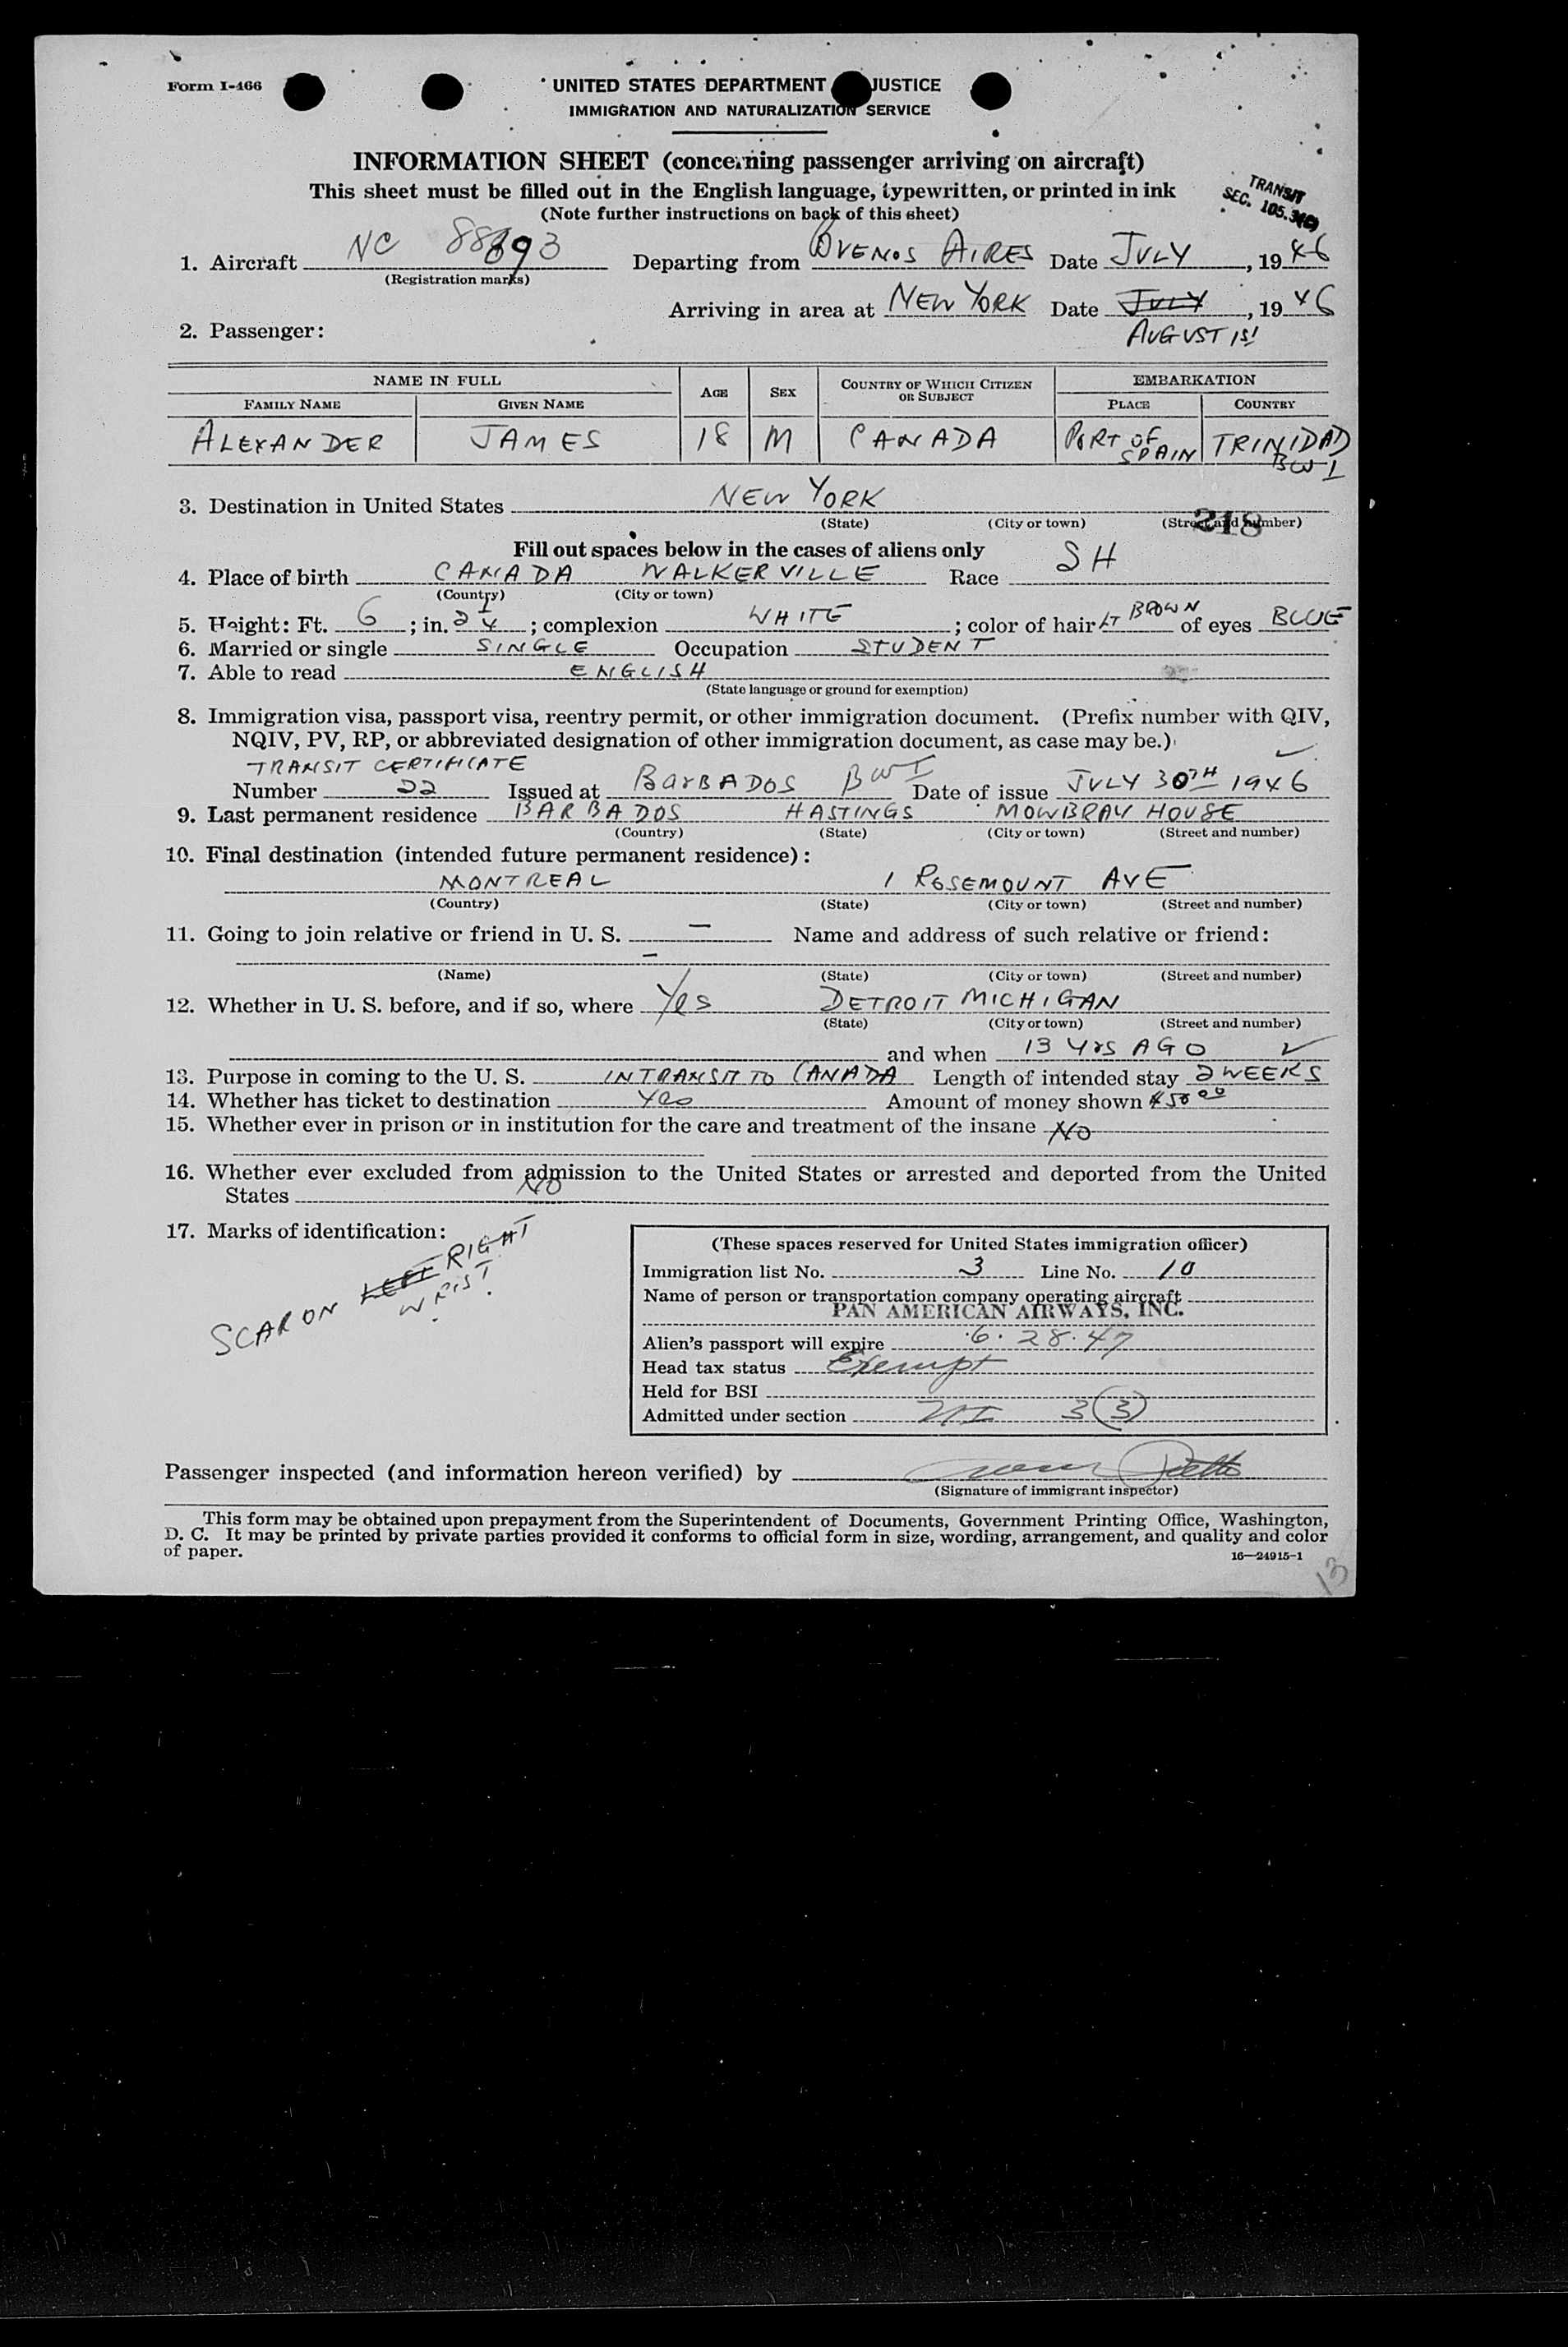 Form I-466
UNITED STATES DEPARTMENT JUSTICE
IMMIGRATION AND NATURALIZATION SERVICE
INFORMATION SHEET (concerning passenger arriving on aircraft)
This sheet must be filled out in the English language, typewritten, or printed in ink
(Note further instructions on back of this sheet)
TRANSIT
SEC. 105.3(C)
1. Aircraft NC 88893 Departing from BUENOS AIRES Date JULY, 1946
(Registration marks)
Arriving in area at NEW YORK Date JULY, 1946
2. Passenger: AUGUST 1st
NAME IN FULL AGE SEX COUNTRY OF WHICH CITIZEN OR SUBJECT EMBARKATION
FAMILY NAME GIVEN NAME PLACE COUNTRY
ALEXANDER JAMES 18 M CANADA PORT OF SPAIN TRINIDAD BWI
3. Destination in United States NEW YORK
(State) (City or town) (Street and number)
218
Fill out spaces below in the cases of aliens only
4. Place of birth CANADA WALKERVILLE Race SH
(Country) (City or town)
5. Height: Ft. 6; in. 2 ¼; complexion WHITE; color of hair LT BROWN of eyes BLUE
6. Married or single SINGLE Occupation STUDENT
7. Able to read ENGLISH
(State language or ground for exemption)
8. Immigration visa, passport visa, reentry permit, or other immigration document. (Prefix number with QIV,
NQIV, PV, RP, or abbreviated designation of other immigration document, as case may be.)
TRANSIT CERTIFICATE
Number 22 Issued at BARBADOS BWI Date of issue JULY 30TH 1946
9. Last permanent residence BARBADOS HASTINGS MOWBRAY HOUSE
(Country) (State) (City or town) (Street and number)
10. Final destination (intended future permanent residence):
MONTREAL 1 ROSEMOUNT AVE
(Country) (State) (City or town) (Street and number)
11. Going to join relative or friend in U. S. — Name and address of such relative or friend:
—
(Name) (State) (City or town) (Street and number)
12. Whether in U. S. before, and if so, where Yes DETROIT MICHIGAN
(State) (City or town) (Street and number)
and when 13 Yrs AGO
13. Purpose in coming to the U. S. IN TRANSIT TO CANADA Length of intended stay 2 WEEKS
14. Whether has ticket to destination Yes Amount of money shown $50 00
15. Whether ever in prison or in institution for the care and treatment of the insane NO
16. Whether ever excluded from admission to the United States or arrested and deported from the United
States NO
17. Marks of identification:
SCAR ON LEFT RIGHT
WRIST.
(These spaces reserved for United States immigration officer)
Immigration list No. 3 Line No. 10
Name of person or transportation company operating aircraft
PAN AMERICAN AIRWAYS, INC.
Alien's passport will expire 6. 28. 47
Head tax status Exempt
Held for BSI
Admitted under section 3 (3)
Passenger inspected (and information hereon verified) by
(Signature of immigrant inspector)
This form may be obtained upon prepayment from the Superintendent of Documents, Government Printing Office, Washington,
D. C. It may be printed by private parties provided it conforms to official form in size, wording, arrangement, and quality and color
of paper.
16—24915-1
13